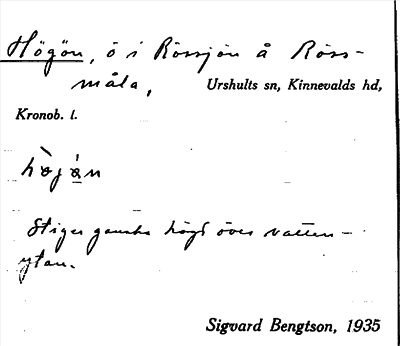 Högön, ö i Rössjön å Röss-
måla, Urshults sn, Kinnevalds hd,
Kronob. l.
Stiger ganska högt över vatten-
ytan.
Sigvard Bengtson, 1935